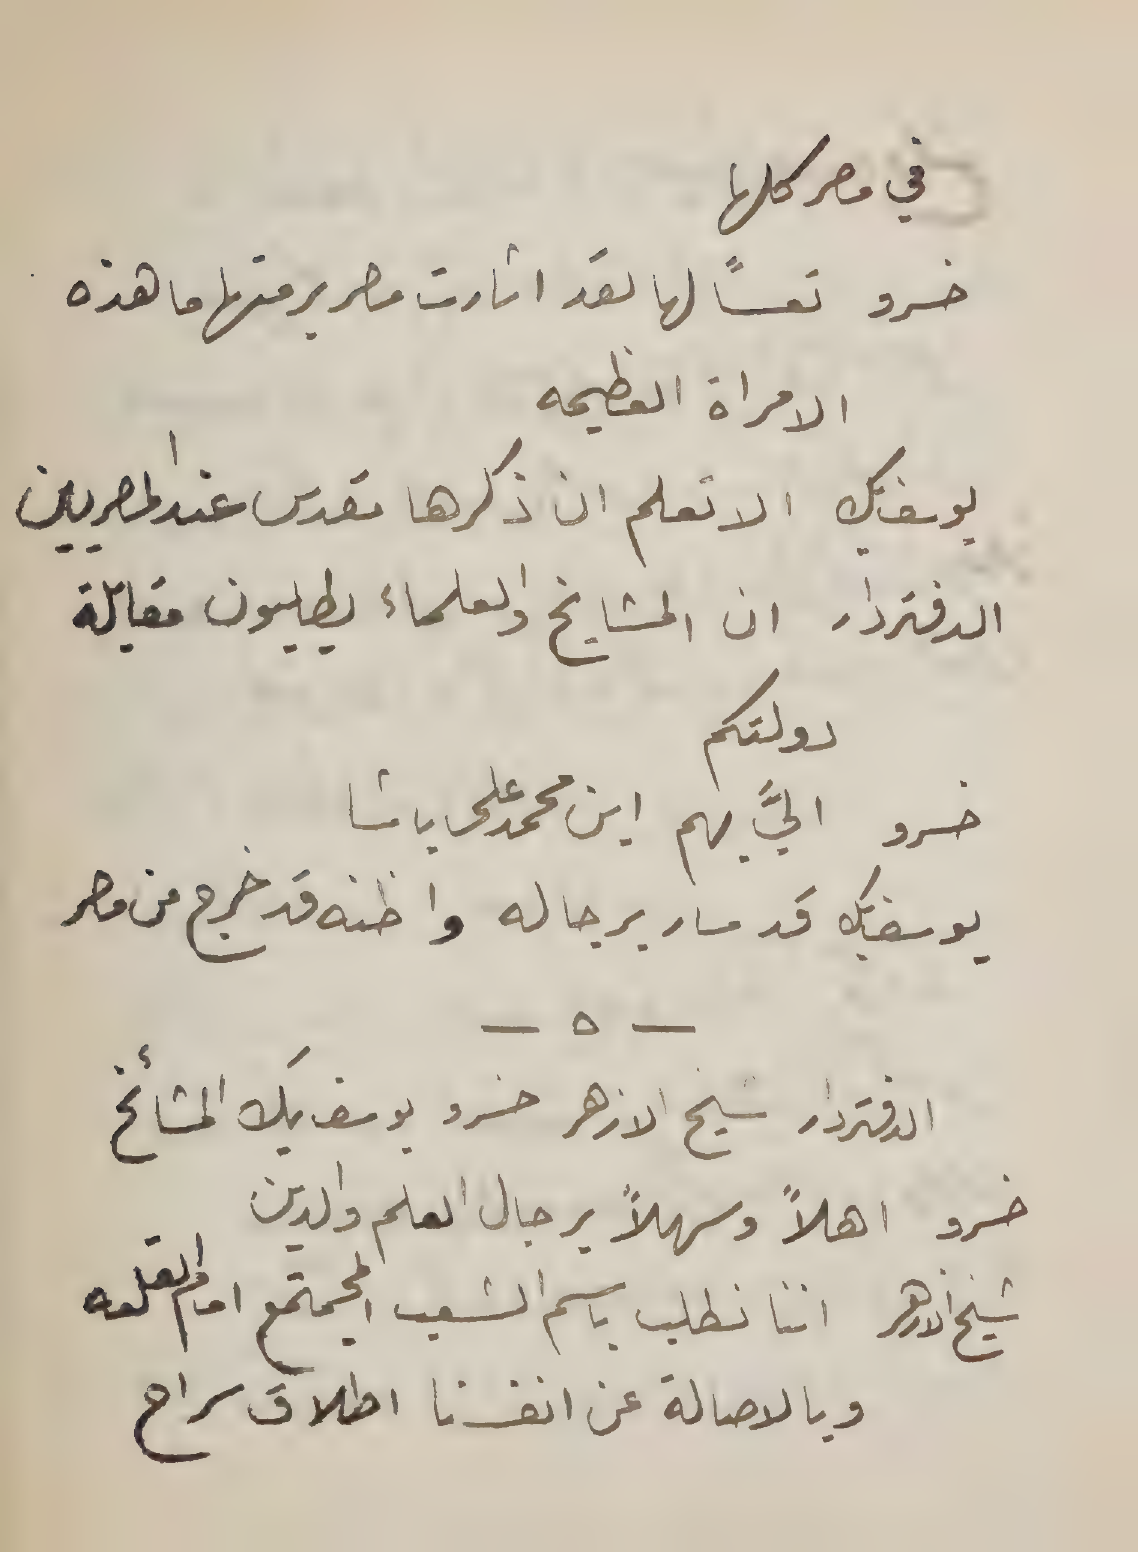 في مصر كلها
خسرو تعساً لها لقد اثارت مصر برمتها ما هذه
الامراة العظيمه
يوسف بك الا تعلم ان ذكرها مقدس عند المصريين
الدفتردار ان المشايخ والعلماء يطلبون مقابلة
دولتكم
خسرو اليَّ بهم اين محمد علي باشا
يوسف بك قد سار برجاله واظنه قد خرج من مصر
— ٥ —
الدفتردار شيخ الازهر خسرو يوسف بك المشائخ
خسرو اهلاً وسهلاً برجال العلم والدين
شيخ الازهر اننا نطلب باسم الشعب المجتمع امام القلعه
وبالاصالة عن انفسنا اطلاق سراح